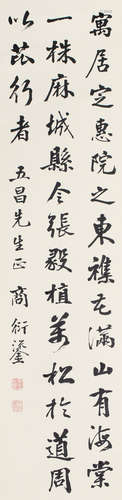 寓居定惠院之東雜花滿山有海棠
一株麻城縣令張毅植萬松於道周
以芘行者
五昌先生正 商衍鎏